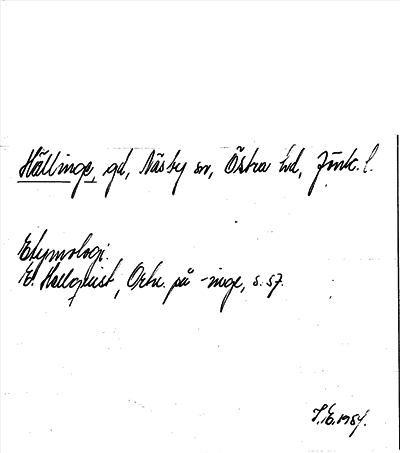 Hällinge, gd, Näsby sn, Östra hd, Jönk. l.
Etymologi:
E. Hellquist, Ortn. på -inge, s. 57.
J.E. 1984.